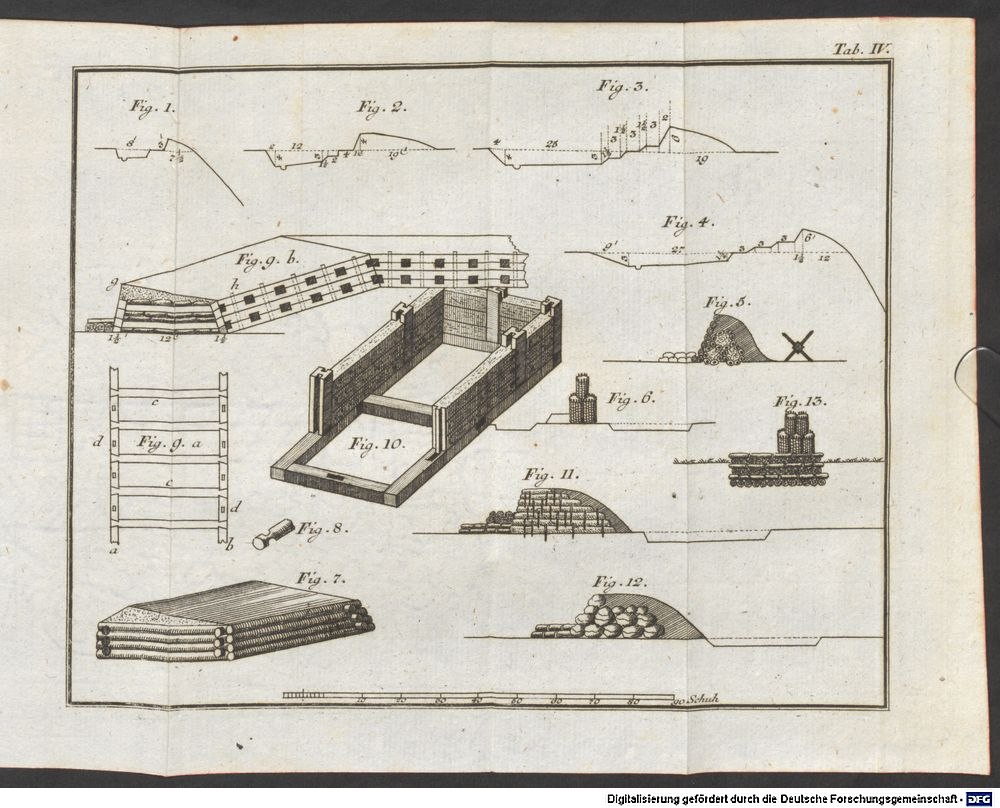 Tab. IV.
Fig. 1.
Fig. 2.
Fig. 3.
8'
12
19
25
19
Fig. 4.
9'
27
3
3
3
6'
1½
12
Fig. 9. b.
g
h
1½'
12
1½
Fig. 5.
Fig. 6.
Fig. 13.
c
d
Fig. 9. a
c
d
a
b
Fig. 10.
Fig. 11.
Fig. 8.
Fig. 7.
Fig. 12.
10 20 30 40 50 60 70 80 90 Schuh
Digitalisierung gefördert durch die Deutsche Forschungsgemeinschaft - DFG